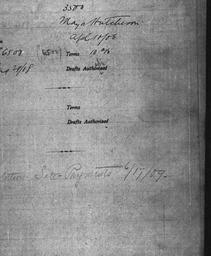 3500
May Hutcheson
Apl 10/08
6500 6500 Terms 10 %
20/08
Drafts Authorized
Terms
Drafts Authorized
See Payments 6/17/09-